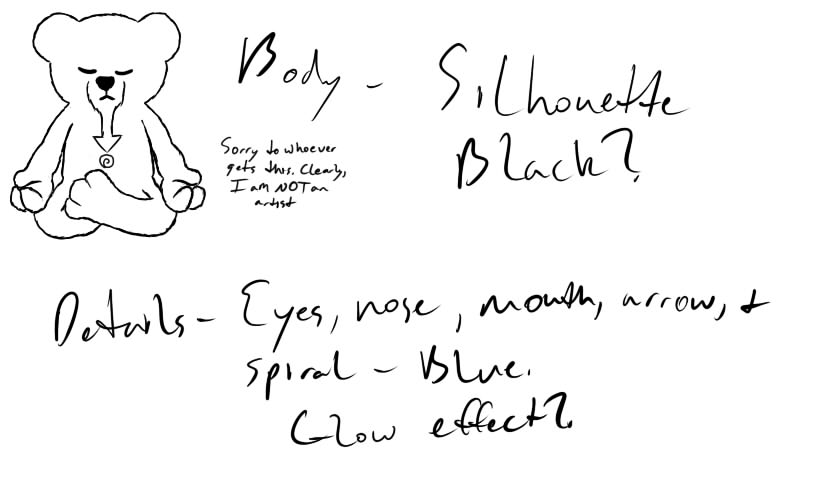 Body - Silhouette
Black?
Sorry to whoever
gets this. Clearly,
I am NOT an
artist
Details - Eyes, nose, mouth, arrow, +
spiral - Blue.
Glow effect?